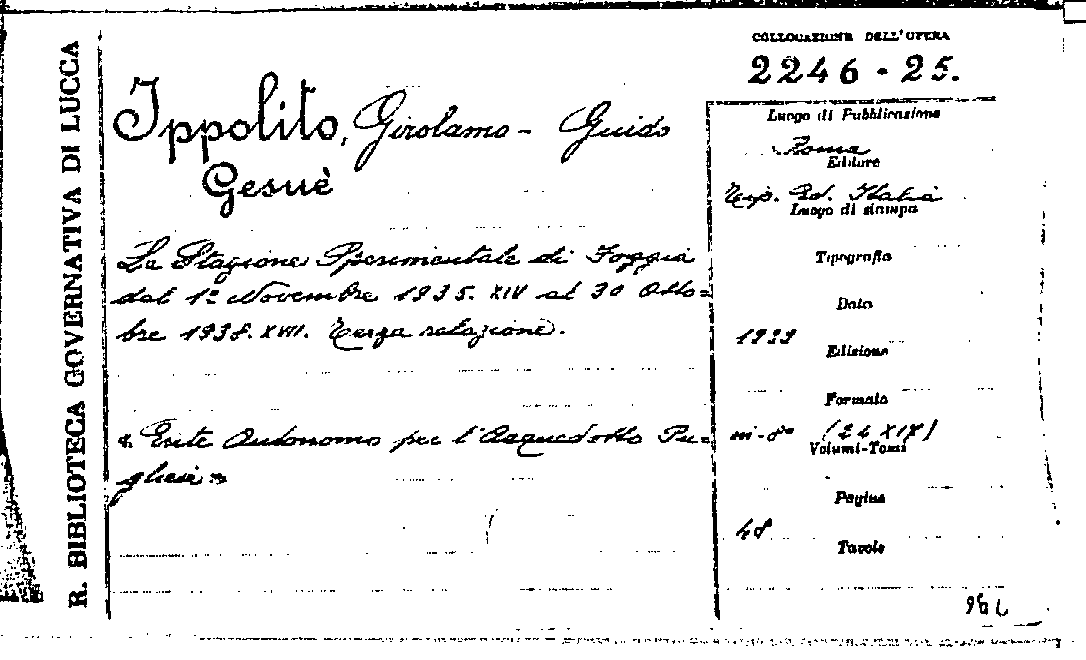 R. BIBLIOTECA GOVERNATIVA DI LUCCA
COLLOCAZIONE DELL'OPERA
2246-25.
Ippolito, Girolamo - Guido
Gesuè
La Stazione Sperimentale di Foggia
dal 1º Novembre 1935. XIV al 30 Otto=
bre 1938. XVII. Terza relazione.
« Ente Autonomo per l'Acquedotto Pu=
gliese »
Luogo di Pubblicazione
Roma
Editore
Tip. Ed. Italia
Luogo di stampa
Tipografia
Data
1939
Edizione
Formato
in-8º (24 X 17)
Volumi-Tomi
Pagine
48
Tavole